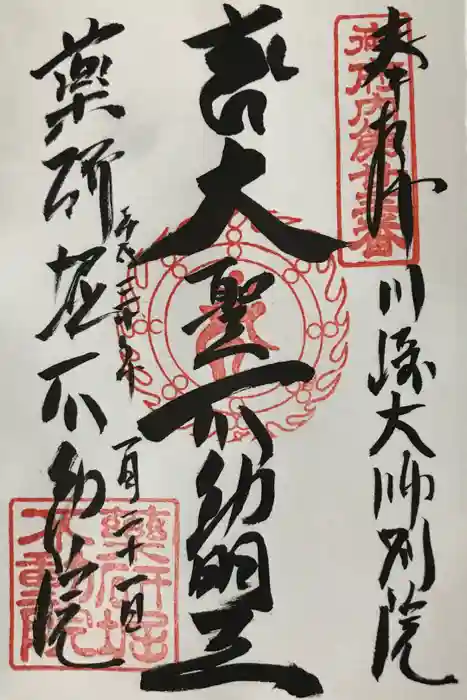 奉拝
御府内第廿三番
川崎大師別院
大聖不動明王
平成三十年
一月二十一日
薬研堀不動院
藥研堀
不動院